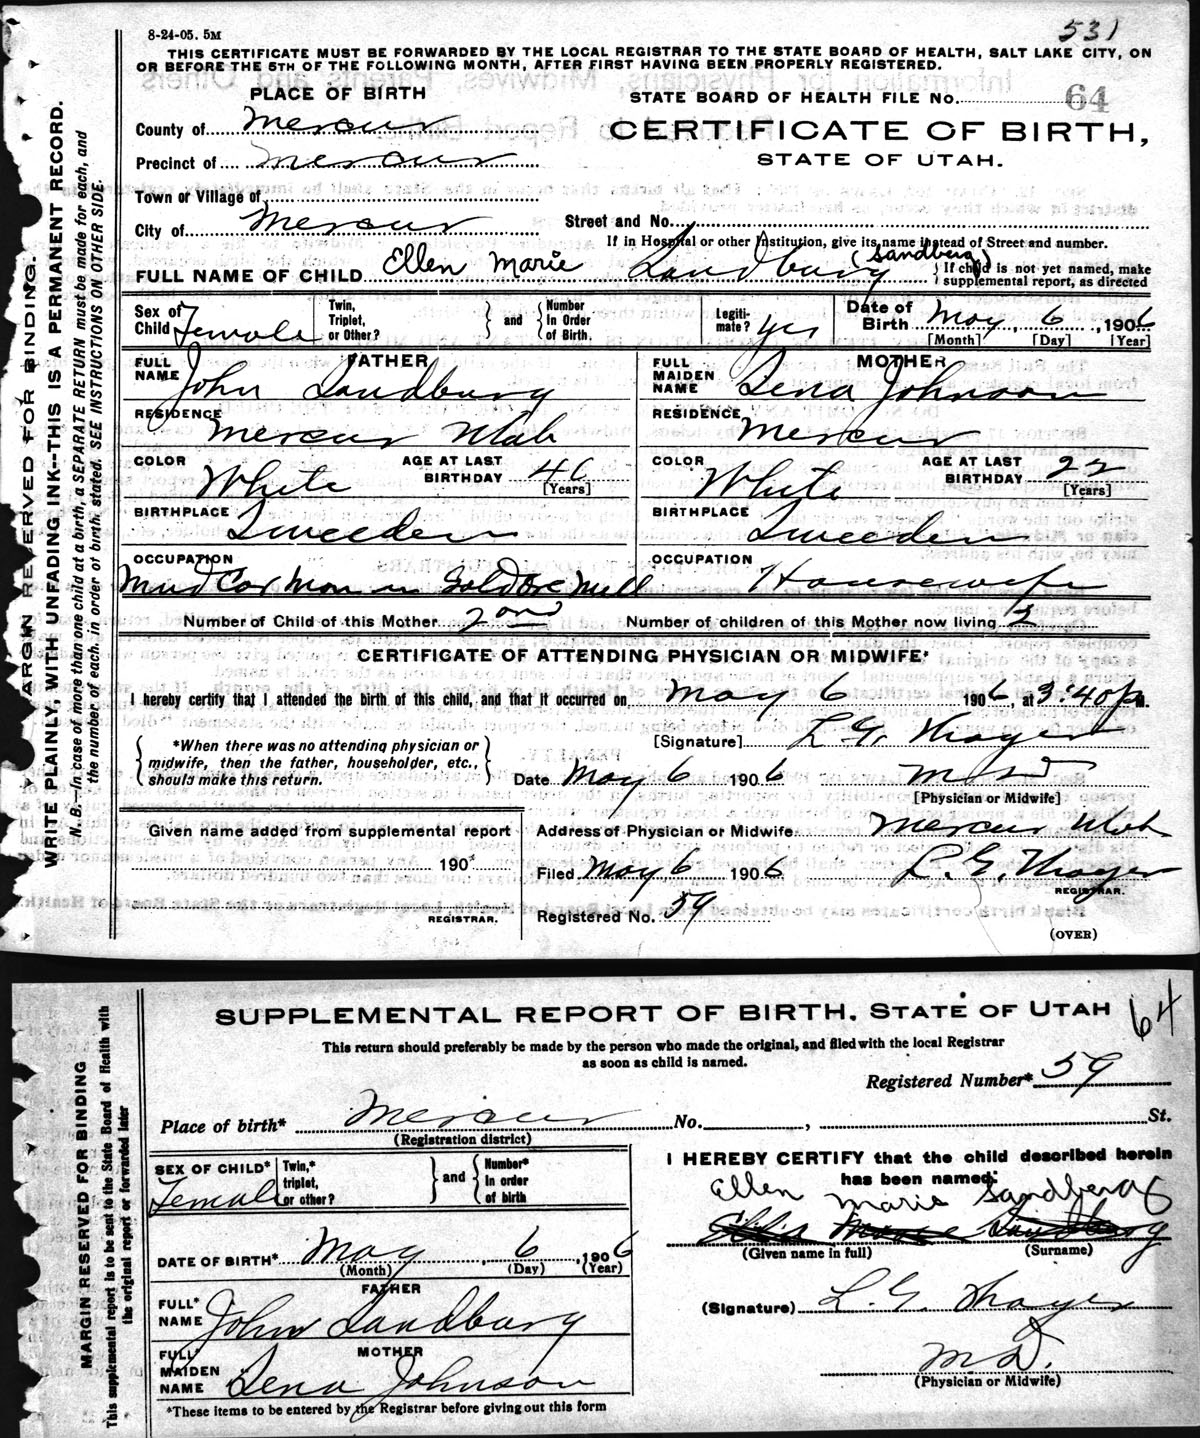 8-24-05. 5M
531
THIS CERTIFICATE MUST BE FORWARDED BY THE LOCAL REGISTRAR TO THE STATE BOARD OF HEALTH, SALT LAKE CITY, ON
OR BEFORE THE 5TH OF THE FOLLOWING MONTH, AFTER FIRST HAVING BEEN PROPERLY REGISTERED.
PLACE OF BIRTH
STATE BOARD OF HEALTH FILE No. 64
County of Mercur
CERTIFICATE OF BIRTH,
Precinct of Mercur
STATE OF UTAH.
Town or Village of
City of Mercur
Street and No.
If in Hospital or other Institution, give its name instead of Street and number.
FULL NAME OF CHILD Ellen Marie Sandburg (Sandberg)
If child is not yet named, make
supplemental report, as directed
Sex of Child Female
Twin, Triplet, or Other? and Number In Order of Birth.
Legiti-mate? yes
Date of Birth May 6, 1906
[Month] [Day] [Year]
FATHER
FULL NAME John Sandburg
RESIDENCE Mercur Utah
COLOR White
AGE AT LAST BIRTHDAY 46
[Years]
BIRTHPLACE Sweeden
OCCUPATION Mud Car Man in Gold Ore Mill
MOTHER
FULL MAIDEN NAME Lena Johnson
RESIDENCE Mercur
COLOR White
AGE AT LAST BIRTHDAY 22
[Years]
BIRTHPLACE Sweeden
OCCUPATION Housewife
Number of Child of this Mother 2nd
Number of children of this Mother now living 2
CERTIFICATE OF ATTENDING PHYSICIAN OR MIDWIFE*
I hereby certify that I attended the birth of this child, and that it occurred on May 6 1906, at 3:40 p M.
*When there was no attending physician or
midwife, then the father, householder, etc.,
should make this return.
[Signature] L. G. Thayer
Date May 6 1906 M D
[Physician or Midwife]
Given name added from supplemental report
190*
REGISTRAR.
Address of Physician or Midwife. Mercur Utah
Filed May 6 1906 L. G. Thayer
REGISTRAR.
Registered No. 59
(OVER)
MARGIN RESERVED FOR BINDING.
WRITE PLAINLY, WITH UNFADING INK--THIS IS A PERMANENT RECORD.
N. B.—In case of more than one child at a birth, a SEPARATE RETURN must be made for each, and
the number of each, in order of birth, stated. SEE INSTRUCTIONS ON OTHER SIDE.
SUPPLEMENTAL REPORT OF BIRTH, STATE OF UTAH
64
This return should preferably be made by the person who made the original, and filed with the local Registrar
as soon as child is named.
Registered Number* 59
Place of birth* Mercur No. , St.
(Registration district)
SEX OF CHILD* Female
Twin,* triplet, or other? and Number* In order of birth
DATE OF BIRTH* May 6, 1906
(Month) (Day) (Year)
FATHER
FULL* NAME John Sandburg
MOTHER
FULL* MAIDEN NAME Lena Johnson
*These items to be entered by the Registrar before giving out this form
I HEREBY CERTIFY that the child described herein
has been named:
Ellen Marie Sandberg
(Given name in full) (Surname)
(Signature) L. G. Thayer
M D.
(Physician or Midwife)
MARGIN RESERVED FOR BINDING
This supplemental report is to be sent to the State Board of Health with
the original report or forwarded later